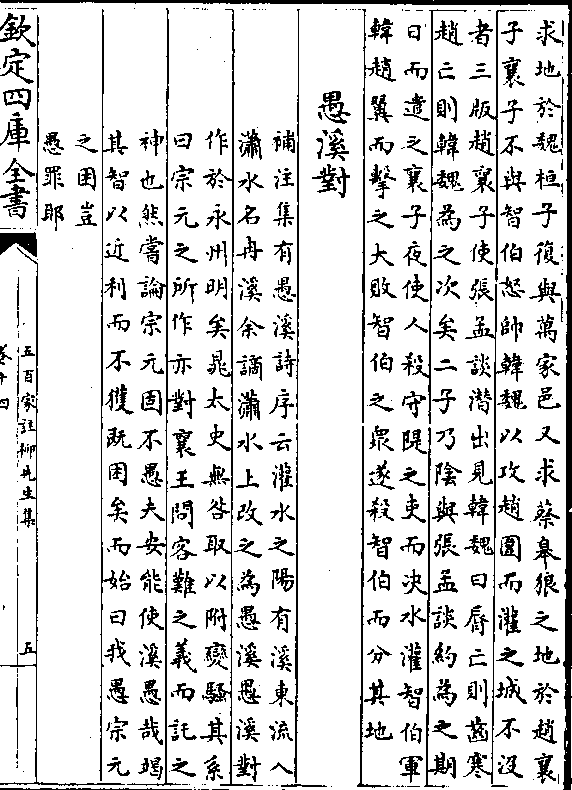 求地於魏桓子復與萬家邑又求蔡皋狼之地於趙襄
子襄子不與智伯怒帥韓魏以攻趙圍而灌之城不沒
者三版趙襄子使張孟談潛出見韓魏曰脣亡則齒寒
趙亡則韓魏為之次矣二子乃陰與張孟談約為之期
日而遣之襄子夜使人殺守隄之吏而決水灌智伯軍
韓趙翼而擊之大敗智伯之衆遂殺智伯而分其地
愚溪對
補注集有愚溪詩序云灌水之陽有溪東流入
瀟水名冉溪余謫瀟水上改之為愚溪愚溪對
作於永州明矣晁太史無咎取以附變騷其系
曰宗元之所作亦對襄王問客難之義而託之
神也然嘗論宗元固不愚夫安能使溪愚哉竭
其智以近利而不獲既困矣而始曰我愚宗元
之困豈
愚罪耶
欽定四庫全書
卷十四
五百家註柳先生集
五